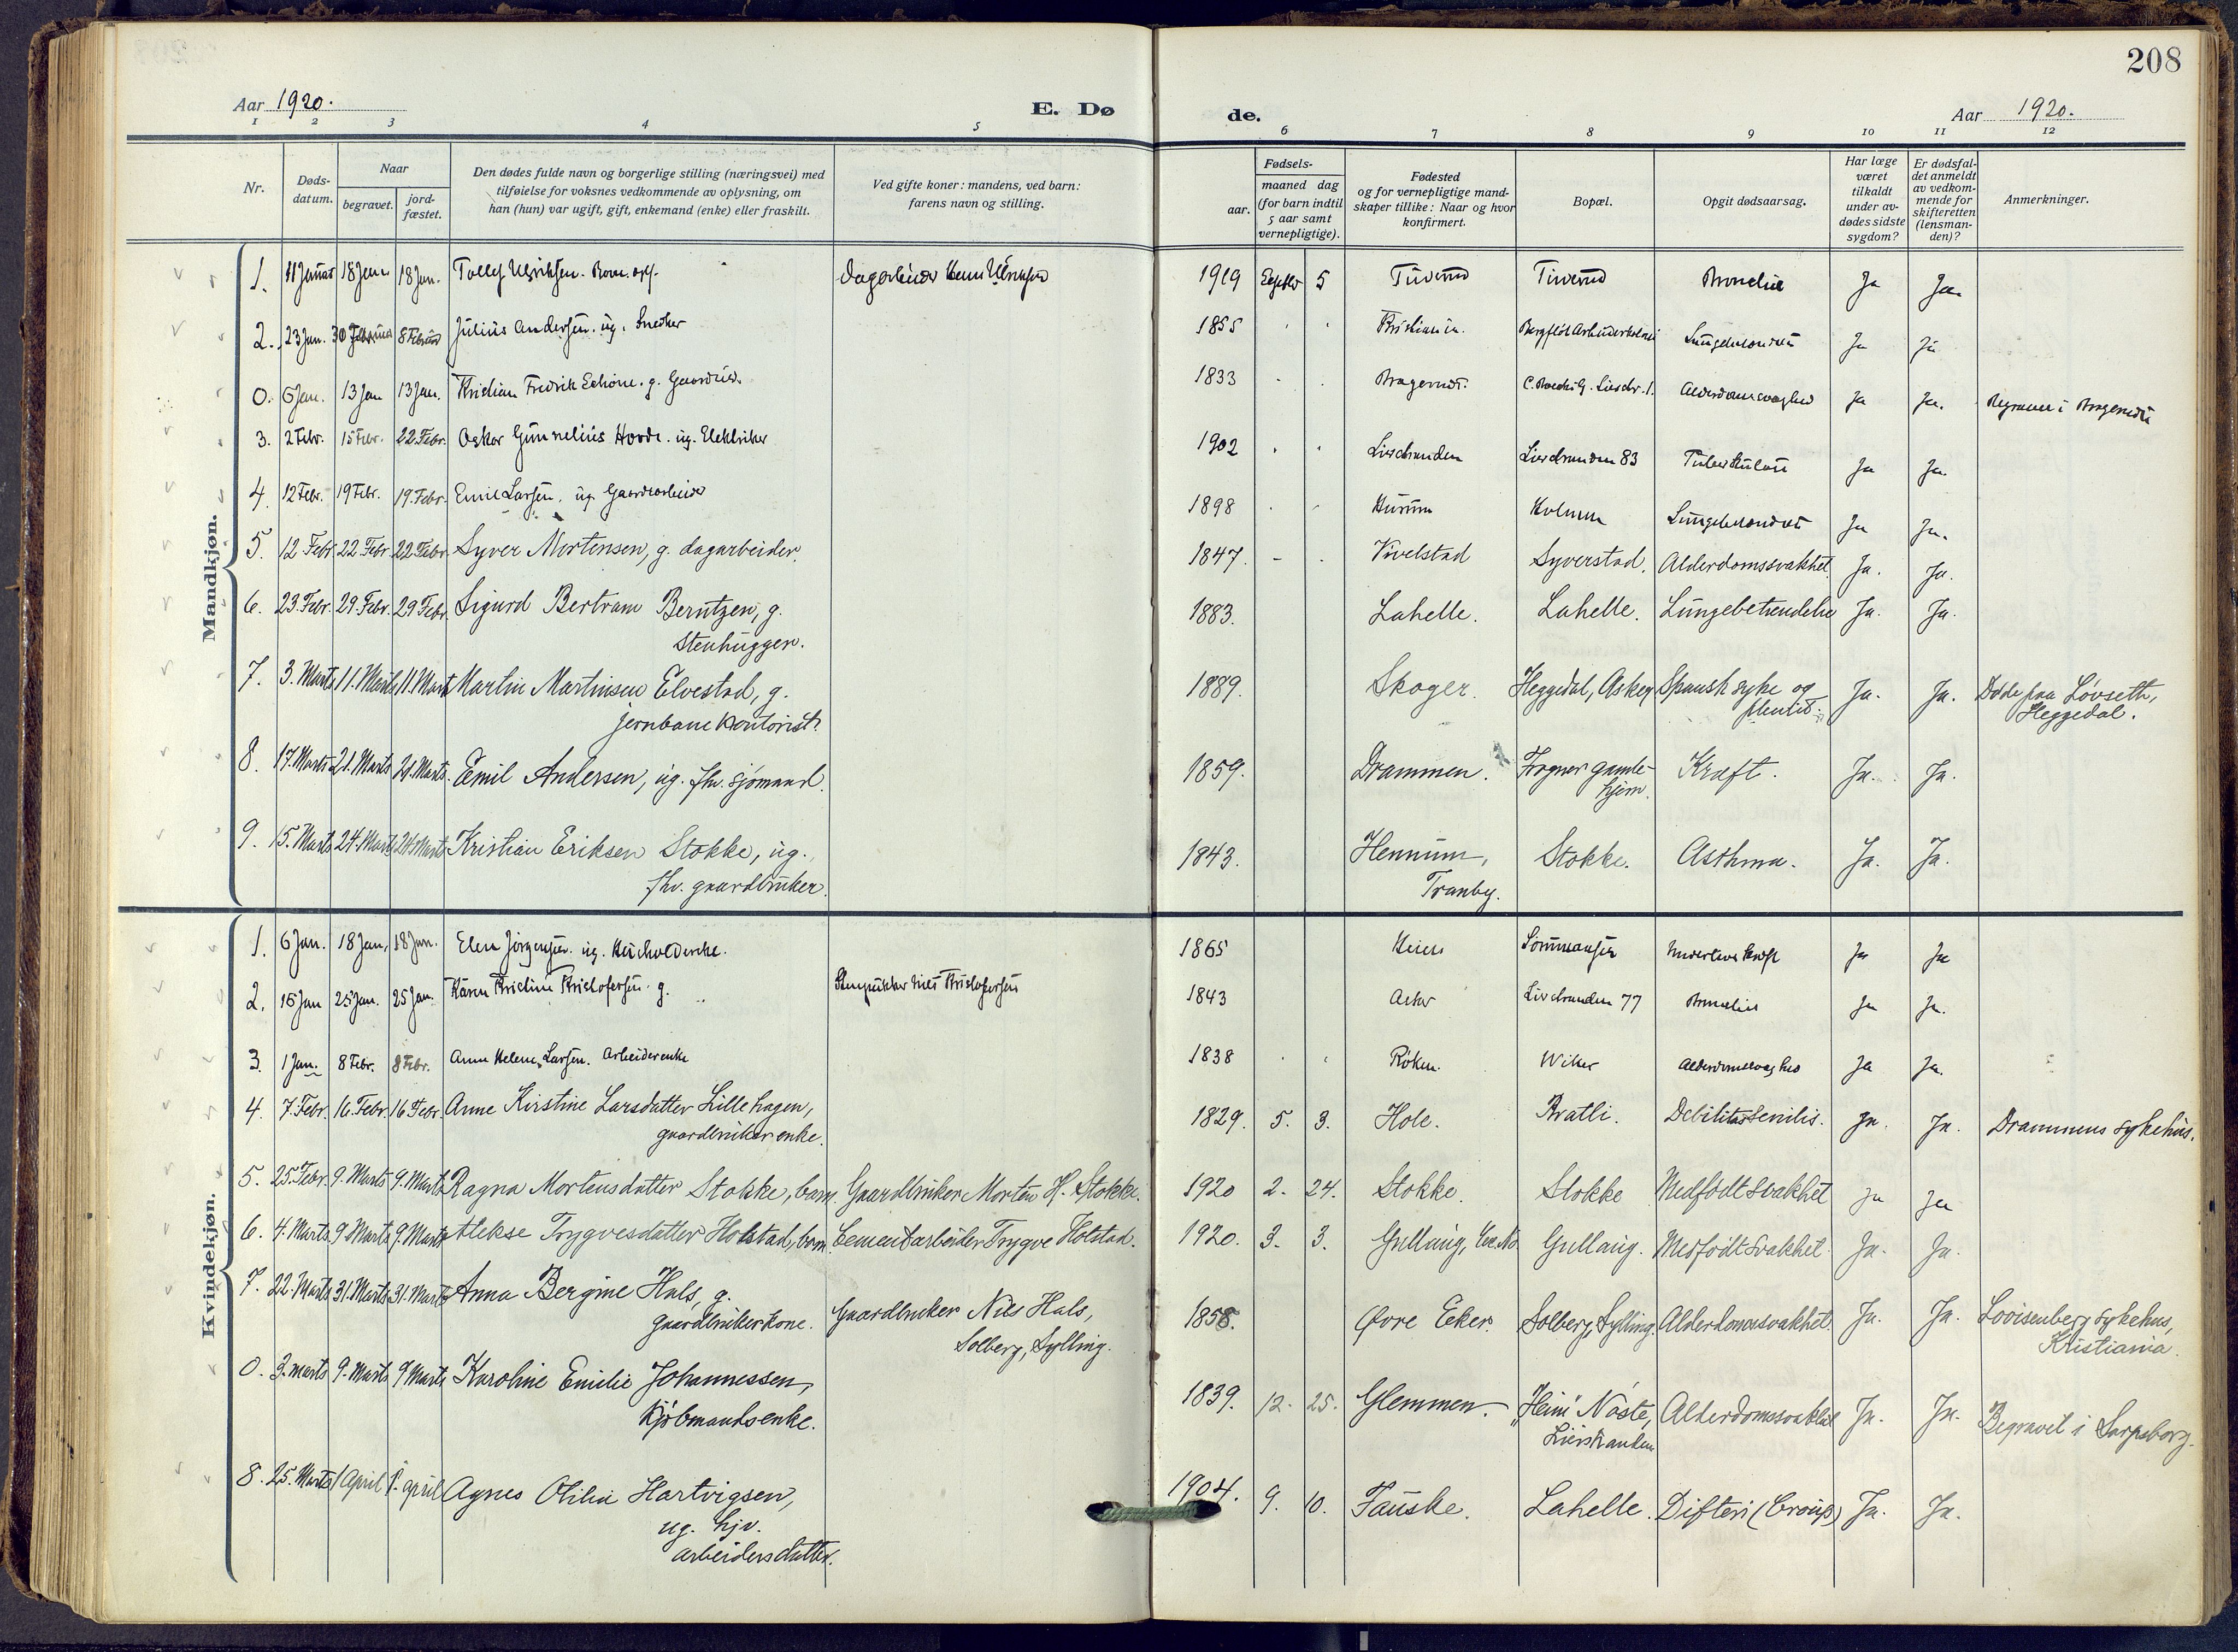 208
Aar 1920.
E. Dø
de.
Aar 1920.
1 2 3 4 5 6 7 8 9 10 11 12
Nr.
Døds-
datum.
Naar
begravet.
jord-
fæstet.
Den dødes fulde navn og borgerlige stilling (næringsvei) med
tilføielse for voksnes vedkommende av oplysning, om
han (hun) var ugift, gift, enkemand (enke) eller fraskilt.
Ved gifte koner: mandens, ved barn:
farens navn og stilling.
Fødsels-
aar.
maaned dag
(for barn indtil
5 aar samt
vernepligtige).
Fødested
og for vernepligtige mand-
skaper tillike: Naar og hvor
konfirmert.
Bopæl.
Opgit dødsaarsag.
Har læge
været
tilkaldt
under av-
dødes sidste
sygdom?
Er dødsfal-
det anmeldt
av vedkom-
mende for
skifteretten
(lensman-
den)?
Anmerkninger.
Mandkjøn.
1. 18 Jan. 18 Jan. 1919 5 Ja Ja
2. 23 Jan. Julius Andersen. ug. Snedker 1855 Kristiania. Ja Ja
0. 6 Jan. 13 Jan 13 Jan. Kristian Fredrik g. 1833 Bragernes. Ja Ja. Begravet i Bragernes
3. 2 Febr. 15 Febr. 22 Febr. Oskar Hovde. ug. Elektriker 1902 Lierstranden Lierstranden 83 Tuberkulose Ja Ja.
4. 12 Febr. 19 Febr. 19. Febr. Emil Larsen. ug. Gaardsarbeider 1898 Hurum Ja Ja.
5. 12 Febr. 22 Febr. 22 Febr. Syver Mortensen, g. dagarbeider. 1847. Vivelstad Syverstad. Alderdomssvakhet. Ja. Ja.
6. 23. Febr. 29. Febr. 29 Febr. Sigurd Bertram Berntzen, g. 1883. Lahelle. Lahelle. Lungebetændelse Ja. Ja.
Stenhugger.
7. 3. Marts 11. Marts 11. Marts Martin Martinsen Elvestad, g. 1889. Skoger. Heggedal, Asker Spansk syke og Ja. Ja. Døde paa Løvseth,
jernbanekontorist. Heggedal.
8. 17. Marts 21. Marts 21. Marts. Emil Andersen, ug. fhv. sjømand. 1859. Drammen. Frogner gamle- Kræft. Ja. Ja.
hjem.
9. 15. Marts 24. Marts 24. Marts Kristian Eriksen Stokke, ug. 1843. Hennum, Stokke. Asthma. Ja. Ja.
fhv. gaardbruker. Tranby.
Kvindekjøn.
1. 6 Jan. 18 Jan. 18 Jan. Elen Jørgensen. ug. 1865 Ja Ja
2. 15 Jan 25 Jan. 25 Jan. Karen Kristine Kristofersen. g. Nils Kristofersen 1843 Asker Lierstranden 77 Ja Ja.
3. 1 Jan. 8 Febr. 8 Febr. Anne Helene Larsen. Arbeiderenke 1838 Røken. Wiker Ja Ja.
4. 7. Febr. 16. Febr. 16 Febr. Anne Kirstine Larsdatter Lillehagen, 1829. 5. 3. Hole. Bratli. Debilitas Senilis. Ja. Ja. Drammens sykehus.
gaardbrukerenke.
5. 25. Febr. 9. Marts 9. Marts Ragna Mortensdatter Stokke, barn. Gaardbruker Morten H. Stokke. 1920 2. 24. Stokke. Stokke Medfødt svakhet Ja Ja
6. 4. Marts. 9. Marts 9. Marts Trygvesdatter Holstad, barn. Cementarbeider Trygve Holstad. 1920. 3. 3. Gullaug, Gullaug. Medfødt svakhet. Ja. Ja.
7. 22. Marts 31. Marts 31. Marts Anna Bergine Hals, g. Gaardbruker Nils Hals, 1858. Øvre Eker. Solberg, Sylling. Alderdomssvakhet. Ja. Ja. Lovisenberg sykehus,
gaardbrukerkone. Solberg, Sylling. Kristiania.
0. 3. marts 9. Marts 9 Marts Karoline Emilie Johannessen, 1839. 12. 25. Glemmen. "Heim" Nøste, Alderdomssvakhet Ja. Ja. Begravet i Sarpsborg.
kjøbmandsenke. Lierstranden
8. 25. Marts 1 April 1. april Agnes Otilie Hartvigsen, 1904. 9. 10. Fauske. Lahelle. Difteri (Croup) Ja. Ja.
ug. hjv.
arbeidersdatter.